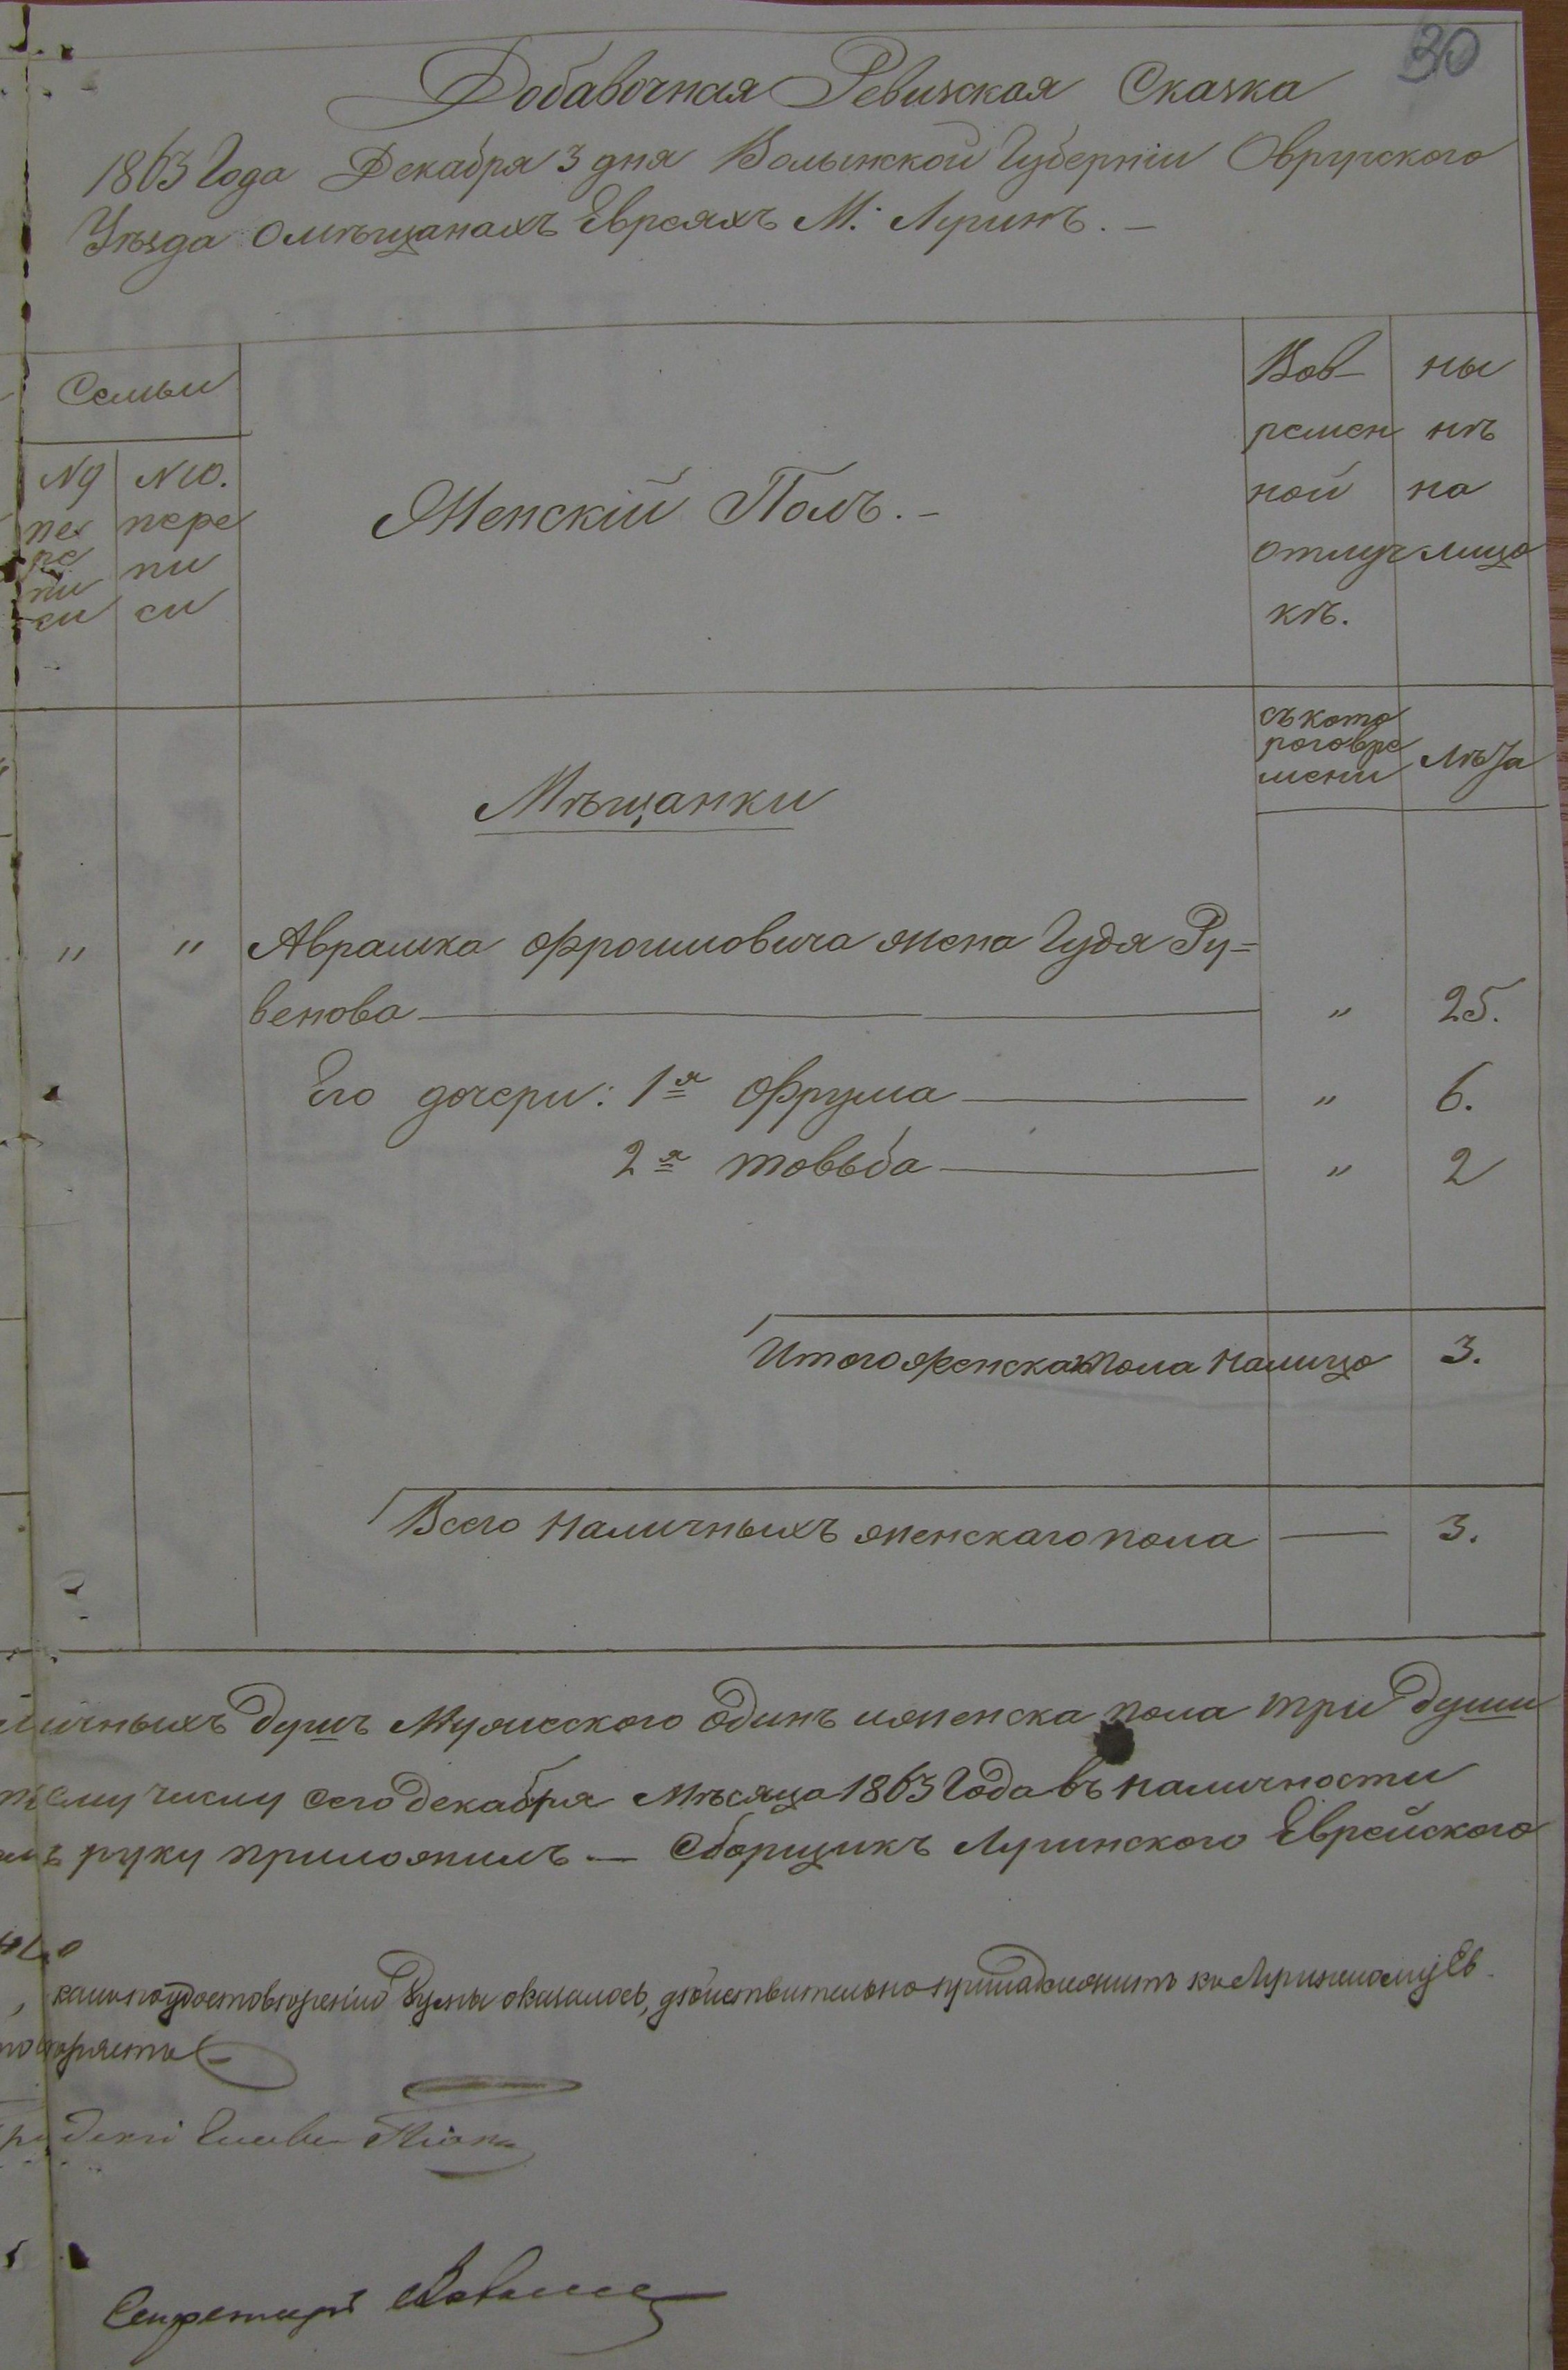 30
Добавочная Ревизская Сказка
1863 Года Декабря 3 дня Волынской Губерніи Овручского
Уѣзда о мѣщанахъ Евреяхъ М: Лугинъ. —
Семьи
№ 9 пе ре пи си
№ 10. пере пи си
Женскій Полъ. —
Вов ремен ной отлуч кѣ.
ны нѣ на лицо
съ кото рого вре мени
Лѣта
Мѣщанки
" " Аврашка Фроимовича жена Гудя Ру=
венова — " 25.
Его дочери: 1я Фрума — " 6.
2я товьба — " 2
Итого женска пола налицо 3.
Всего наличныхъ женскаго пола — 3.
личныхъ душъ Мужеского одинъ и женска пола три души
ему числу сего декабря Мѣсяца 1863 Года въ наличности
ъ руку приложилъ. — Сборщикъ Лугинского Еврейского
по удостовѣренію Думы оказалось, дѣйствительно принадлежитъ къ Лугинскому Ев
Секретарь